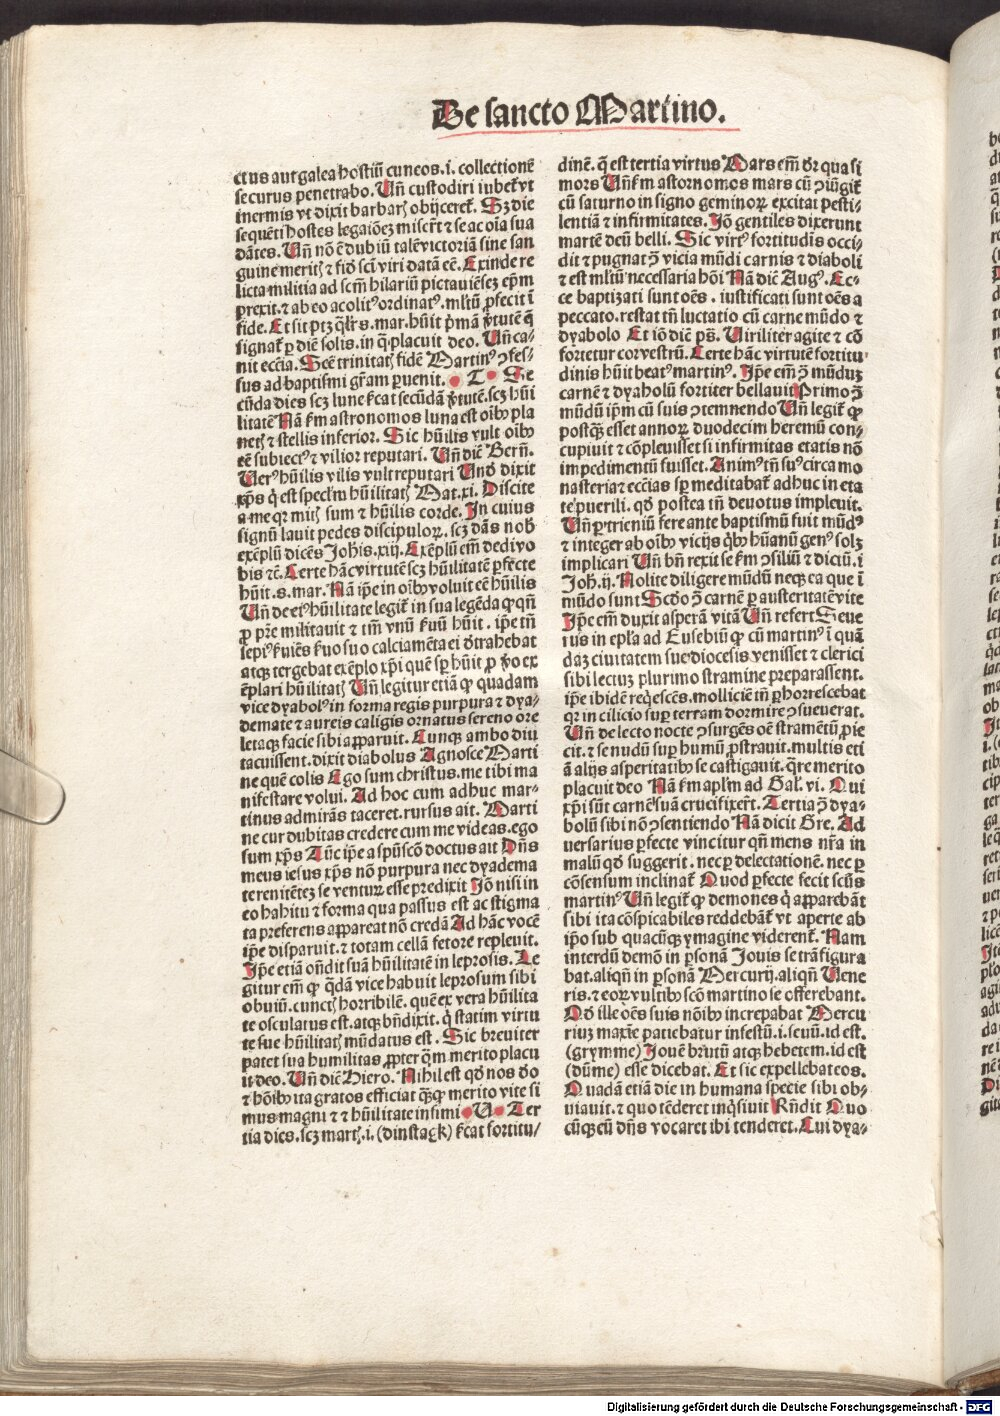 De sancto Martino.
ctus aut galea hostiū cuneos.i. collectionē
securus penetrabo. Uñ custodiri iubet͛ vt
inermis vt dixit barbaꝝ obijceret͛. Sꝫ die
sequēti hostes legatiōeꝫ miserūt ⁊ se ac oīa sua
dātes. Uñ nō ē dubiū talē victoriā sine san
guine meritꝭ ⁊ fiđ scī viri datā eē. Exinde re
licta militia ad scm̄ hilariū pictauiēseꝫ ep̄m
prexit. ⁊ ab eo acolitꝰ ordinatꝰ. ml̄tū ꝓfecit ī
fide. Et sit ptꝫ qlr̄ s. mar. hūit p̄mā v̄tutē q̄
signat͛ ꝑ diē solis. in q̄ placuit deo. Uñ ca-
nit eccīa. Scē trinitatꝭ fidē Martinꝰ ꝯfes-
sus ad baptismi gr̄am ꝑuenit. T Se
cūda dies scꝫ lune ſ͛cat secūdā v̄tutē. scꝫ hūi
litatē Nā ſm astronomos luna est oībꝰ pla
netꝭ ⁊ stellis inferior. Sic hūilis vult oībꝰ
eē subiectꝰ ⁊ vilior reputari. Uñ diē Bern̄.
Uerꝰ hūilis vilis vult reputari Unđ dixit
xp̄s q̇ est specl'm hūilitatꝭ Mat. xi. Discite
a me qꝛ mitꝭ sum ⁊ hūilis corde. In cuius
signū lauit pedes discipuloꝝ. scꝫ dās nob̄
exēplū dicēs Joh̄is. xiij. Exēplū em̄ dedi vo
bis ⁊c̄. Certe hāc virtutē scꝫ hūilitatē ꝑfecte
hūit. s. mar. Nā ip̄e in oībꝰ voluit eē hūilis
Uñ de eiꝰ hūilitate legit͛ in sua legēda ꝙ qn̄
ꝓ pr̄e militauit ⁊ tm̄ vnū ſ͛uū hūit. ip̄e tn̄
sepiꝰ ſ͛uiēs ſ͛uo suo calciamēta ei đtrahebat
atqꝫ tergebat exēplo xp̄i quē sp̄ hūit ꝓ v̄o ex
ēplari hūilitatꝭ Uñ legitur etiā ꝙ quadam
vice dyabolꝰ in forma regis purpura ⁊ dya-
demate ⁊ aureis caligis ornatus sereno ore
letaqꝫ facie sibi aꝑparuit. Cunqꝫ ambo diu
tacuissent. dixit diabolus Agnosce Marti
ne quē colis Ego sum christus. me tibi ma
nifestare volui. Ad hoc cum adhuc mar-
tinus admirās taceret. rursus ait. Marti
ne cur dubitas credere cum me videas. ego
sum xp̄s Tūc ip̄e a spūscō doctus ait Dn̄s
meus iesus xp̄s nō purpura nec dyadema
te renitēteꝫ se venturꝝ esse predixit Jō nisi in
eo habitu ⁊ forma qua passus est ac stigma
ta preferens appareat nō credā Ad hāc vocē
ip̄e disparuit. ⁊ totam cellā fetore repleuit.
Ip̄e etiā on̄dit suā hūilitatē in leprosis. Le
gitur em̄ ꝙ q̄dā vice habuit leprosum sibi
obuiū. cunctꝭ horribilē. quē ex vera hūilita
te osculatus est. atqꝫ bn̄dixit. q̇ statim virtu
te sue hūilitatꝭ mūdatus est. Sic breuiter
patet sua humilitas ꝓpter q̄m merito placu
it deo. Uñ diē Hiero. Nihil est qđ nos đo
⁊ hoībꝰ ita gratos efficiat q̄ꝫ ꝙ merito vite si
mus magni ⁊ ⁊ hūilitate infimi U Ter
tia dies. scꝫ martꝭ. i. (dinstagk) ſ͛cat fortitu/
dinē. q̄ est tertia virtus Mars em̄ dr̄ quasi
mors Uñ ſm astornomos mars cū ꝯiūgit͛
cū saturno in signo geminoꝝ excitat pesti-
lentiā ⁊ infirmitates. Jō gentiles dixerunt
martē deū belli. Sic virtꝰ fortitudīs occi-
dit ⁊ pugnat ꝯ̄ vicia mūdi carnis ⁊ diaboli
⁊ est ml̄tū necessaria hoī Nā diē Augꝰ. Ec-
ce baptizati sunt oēs. iustificati sunt oēs a
peccato. restat tn̄ luctatio cū carne mūdo ⁊
dyabolo Et iō diē ps̄. Uiriliter agite ⁊ cō
fortetur cor vestrū. Certe hāc virtutē fortitu
dinis hūit beatꝰ martinꝰ. Ip̄e em̄ ꝯ̄ mūduꝫ
carnē ⁊ dyabolū fortiter bellauit Primo ꝯ̄
mūdū ip̄m cū suis ꝯtemnendo Uñ legit͛ ꝙ
postq̄ꝫ esset annoꝝ duodecim heremū con-
cupiuit ⁊ cōpleuisset si infirmitas etatis nō
impedimētū fuisset. Animꝰ tn̄ suꝰ circa mo
nasteria ⁊ eccīas sp̄ meditabat͛ adhuc in eta
te puerili. qđ postea tn̄ deuotus impleuit.
Uñ ꝑ trieniū fere ante baptismū fuit mūdꝰ
⁊ integer ab oībꝰ vicijs q̇bꝰ hūanū genꝰ solꝫ
implicari Uñ bn̄ rexit se ſm ꝯsiliū ⁊ dictū. i
Joh̄. ij. Nolite diligere mūdū neqꝫ ea que ī
mūdo sunt Scđo ꝯ̄ carnē ꝑ austeritatē vite
Ip̄e em̄ duxit asperā vitā Uñ refert Seue
rus in epl̄a ad Eusebiū ꝙ cū martinꝰ ī quā
daꝫ ciuitatem sue diocesis venisset ⁊ clerici
sibi lectuꝫ plurimo stramine preparassent.
ip̄e ibidē reqͥescēs. molliciē tn̄ ꝑhorrescebat
qꝛ in cilicio suꝑ terram dormire ꝯsueuerat.
Uñ de lecto nocte ꝯsurgēs oē stramētū ꝓie
cit. ⁊ se nudū suꝑ humū ꝓstrauit. multis eti
ā alijs asperitatibꝰ se castigauit. q̄re merito
placuit deo Nā ſm apl̄m ad Gal̄. vi. Qui
xp̄i sūt carnē suā crucifixer̄t. Tertia ꝯ̄ dya-
bolū sibi nō ꝯsentiendo Nā dicit Gre. Ad
uersarius ꝑfecte vincitur qn̄ mens nr̄a in
malū qđ suggerit. nec ꝑ delectationē. nec ꝑ
cōsensum inclinat͛ Quod ꝑfecte fecit scūs
martinꝰ Uñ legit͛ ꝙ demones q̇ aꝑparebāt
sibi ita cōspicabiles reddebāt͛ vt aperte ab
ip̄o sub quacūqꝫ ymagine viderent͛. Nam
interdū demō in ꝑsonā Jouis se trāfigura
bat. aliqn̄ in ꝑsonā Mercurij. aliqn̄ Uene
ris. ⁊ eoꝝ vultibꝰ scō martino se offerebant.
Qđ ille oēs suis noībꝰ increpabat Mercu
rius maxīe patiebatur infestū. i. seuū. id est.
(grymme) Jouē brutū atqꝫ hebetem. id est
(dūme) esse dicebat. Et sic expellebat eos.
Quadā etiā die in humana specie sibi ob-
uiauit. ⁊ quo tēderet inq̇siuit Rn̄dit Quo
cūqꝫ cū dn̄s vocaret ibi tenderet. Cui dya-
Digitalisierung gefördert durch die Deutsche Forschungsgemeinschaft - DFG